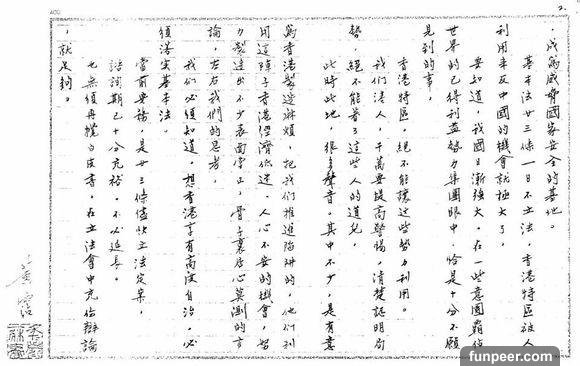 2.
，成為威脅國家安全的基地。
基本法廿三條一日不立法，香港特區被人
利用來反中國的機會就極大了，
要知道，我國日漸強大，在一些意圖霸佔
世界的已得利益勢力集團眼中，恰是十分不願
見到的事，
香港特區，絕不能讓這些勢力利用。
我們港人，千萬要提高警惕，清楚認明局
勢，絕不能着了這些人的道兒，
此時此地，很多聲音。其中不少，是有意
為香港製造麻煩，把我們推進陷阱的，他們利
用這陣子香港經濟低迷、人心不安的機會，努
力製造出不少表面正，骨子裏居心莫測的言
論，左右我們的思考，
我們必須知道，想香港享有高度自治，必
須落實基本法。
當前要務，是廿三條儘快立法定案，
諮詢期已十分充裕。不必延長。
也無須再擬白皮書，在立法會中充份辯論
，就足夠。
黃霑
funpeer.com